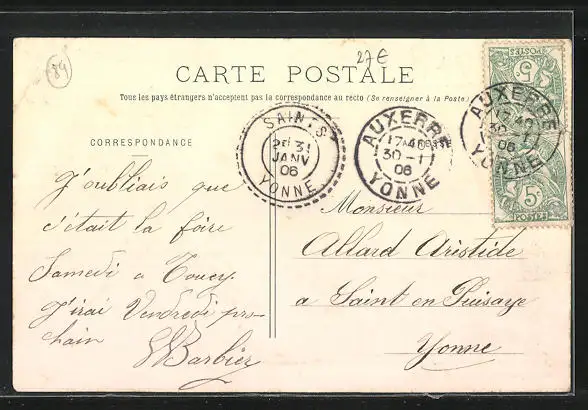 84
27€
CARTE POSTALE
Tous les pays étrangers n'acceptent pas la correspondance au recto (Se renseigner à la Poste)
CORRESPONDANCE
J'oubliais que
c'était la foire
Samedi a Toucy.
J'irai Vendredi pro-
chain
Barbier
SAINTS
2E 31
JANV
06
YONNE
AUXERRE
17 40
30 - 1
06
YONNE
AUXERRE
17 40
30 - 1
06
YONNE
POSTES
5
5
POSTES
Monsieur
Allard Aristide
a Saint en Puisaye
Yonne